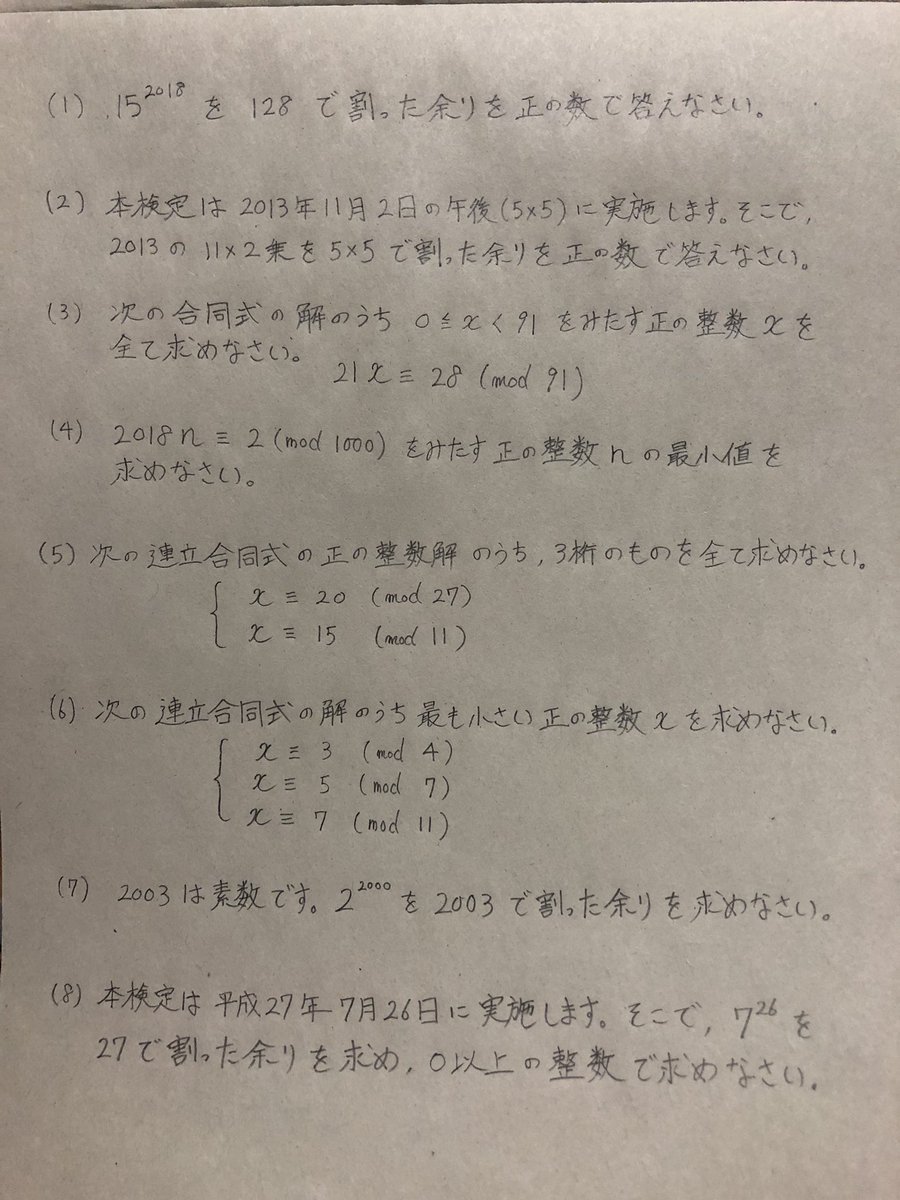 (1) 15^2018 を 128 で割った余りを正の数で答えなさい。
(2) 本検定は 2013年11月2日の午後(5×5)に実施します。そこで,
2013 の 11×2乗を 5×5 で割った余りを正の数で答えなさい。
(3) 次の合同式の解のうち 0≦x<91 をみたす正の整数 x を
全て求めなさい。
21x ≡ 28 (mod 91)
(4) 2018n ≡ 2 (mod 1000) をみたす正の整数 n の最小値を
求めなさい。
(5) 次の連立合同式の正の整数解のうち,3桁のものを全て求めなさい。
x ≡ 20 (mod 27)
x ≡ 15 (mod 11)
(6) 次の連立合同式の解のうち最も小さい正の整数 x を求めなさい。
x ≡ 3 (mod 4)
x ≡ 5 (mod 7)
x ≡ 7 (mod 11)
(7) 2003は素数です。2^2000 を 2003 で割った余りを求めなさい。
(8) 本検定は平成27年7月26日に実施します。そこで,7^26 を
27 で割った余りを求め,0以上の整数で求めなさい。